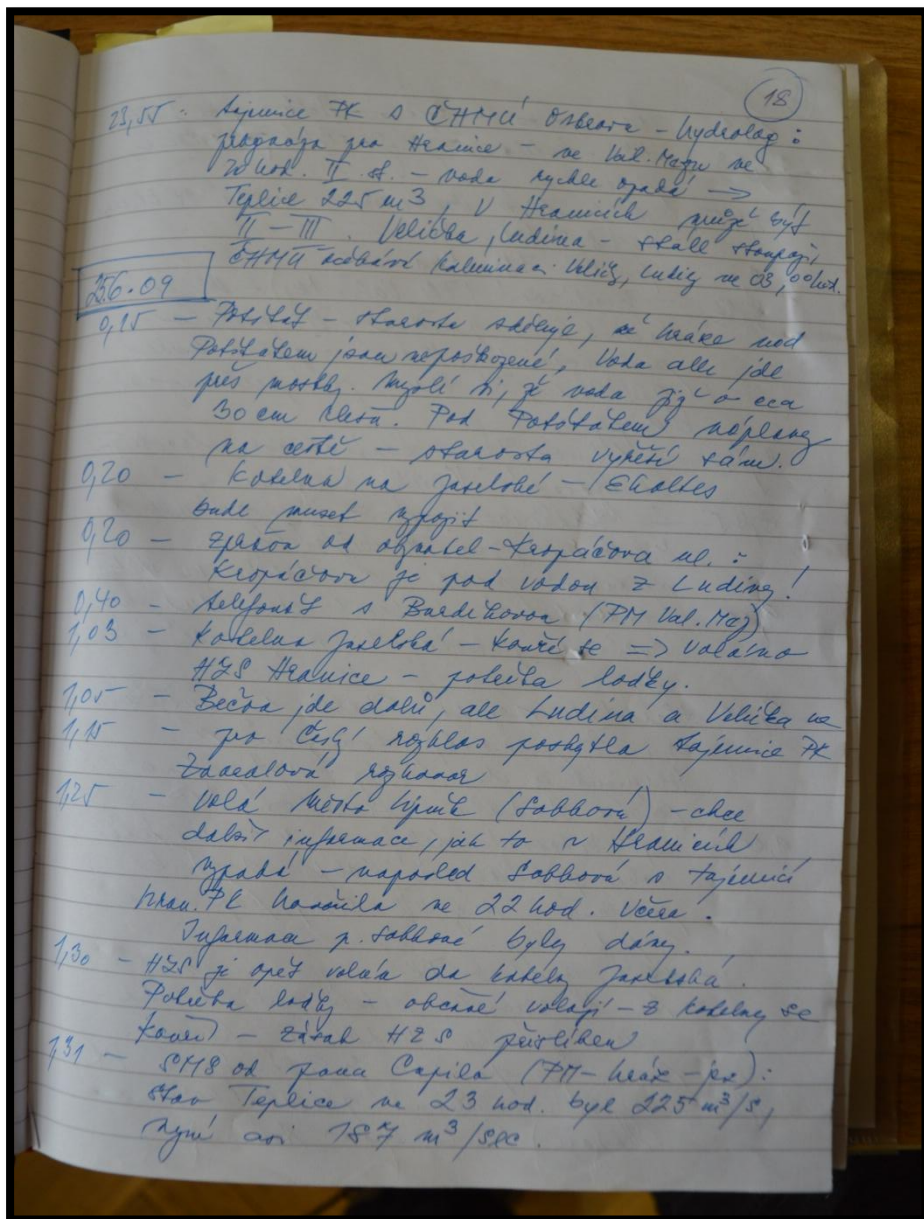 18
23,55 : tajemnice PK s ČHMÚ Ostrava - hydrolog :
prognóza pro Hranice - ve Val. Meziř. ve
hod. II. st. - voda rychle opadá →
Teplice 225 m3, v Hranicích může být
II - III. Velička, Ludina - stále stoupají,
ČHMÚ očekává kulminaci Velič, Ludiny ve 03,00 hod.
25.6.09
0,15 - Potštát - starosta sděluje, že hráze nad
Potštátem jsou nepoškozené, voda ale jde
přes mostky. Myslí si, že voda již o cca
30 cm klesla. Pod Potštátem náplavy
na cestě - starosta vyřeší sám.
0,20 - Kotelna na Jaselské - Ekoltes
bude muset vypojit
0,20 - zpráva od obyvatel - Kropáčova ul. :
Kropáčova je pod vodou z Ludiny!
0,40 - telefonát s (PM Val. Mez)
1,03 - Kotelna Jaselská - kouří se => voláno
HZS Hranice - potřeba loďky.
1,05 - Bečva jde dolů, ale Ludina a Velička ne
1,15 - pro Český rozhlas poskytla tajemnice PK
rozhovor
1,25 - volá město Lipník (Sobková) - chce
další informace, jak to v Hranicích
vypadá - naposled Sobková s tajemnicí
hran. PK hovořila ve 22 hod. včera.
Informace p. Sobkové byly dány.
1,30 - HZS je opět volán do kotelny Jaselská.
Potřeba loďky - občané volají - z kotelny se
kouří - zásah HZS přislíben
1,31 - SMS od pana (PM - hráz - jez) :
stav Teplice ve 23 hod. byl 225 m3/s,
nyní asi 187 m3/sec.